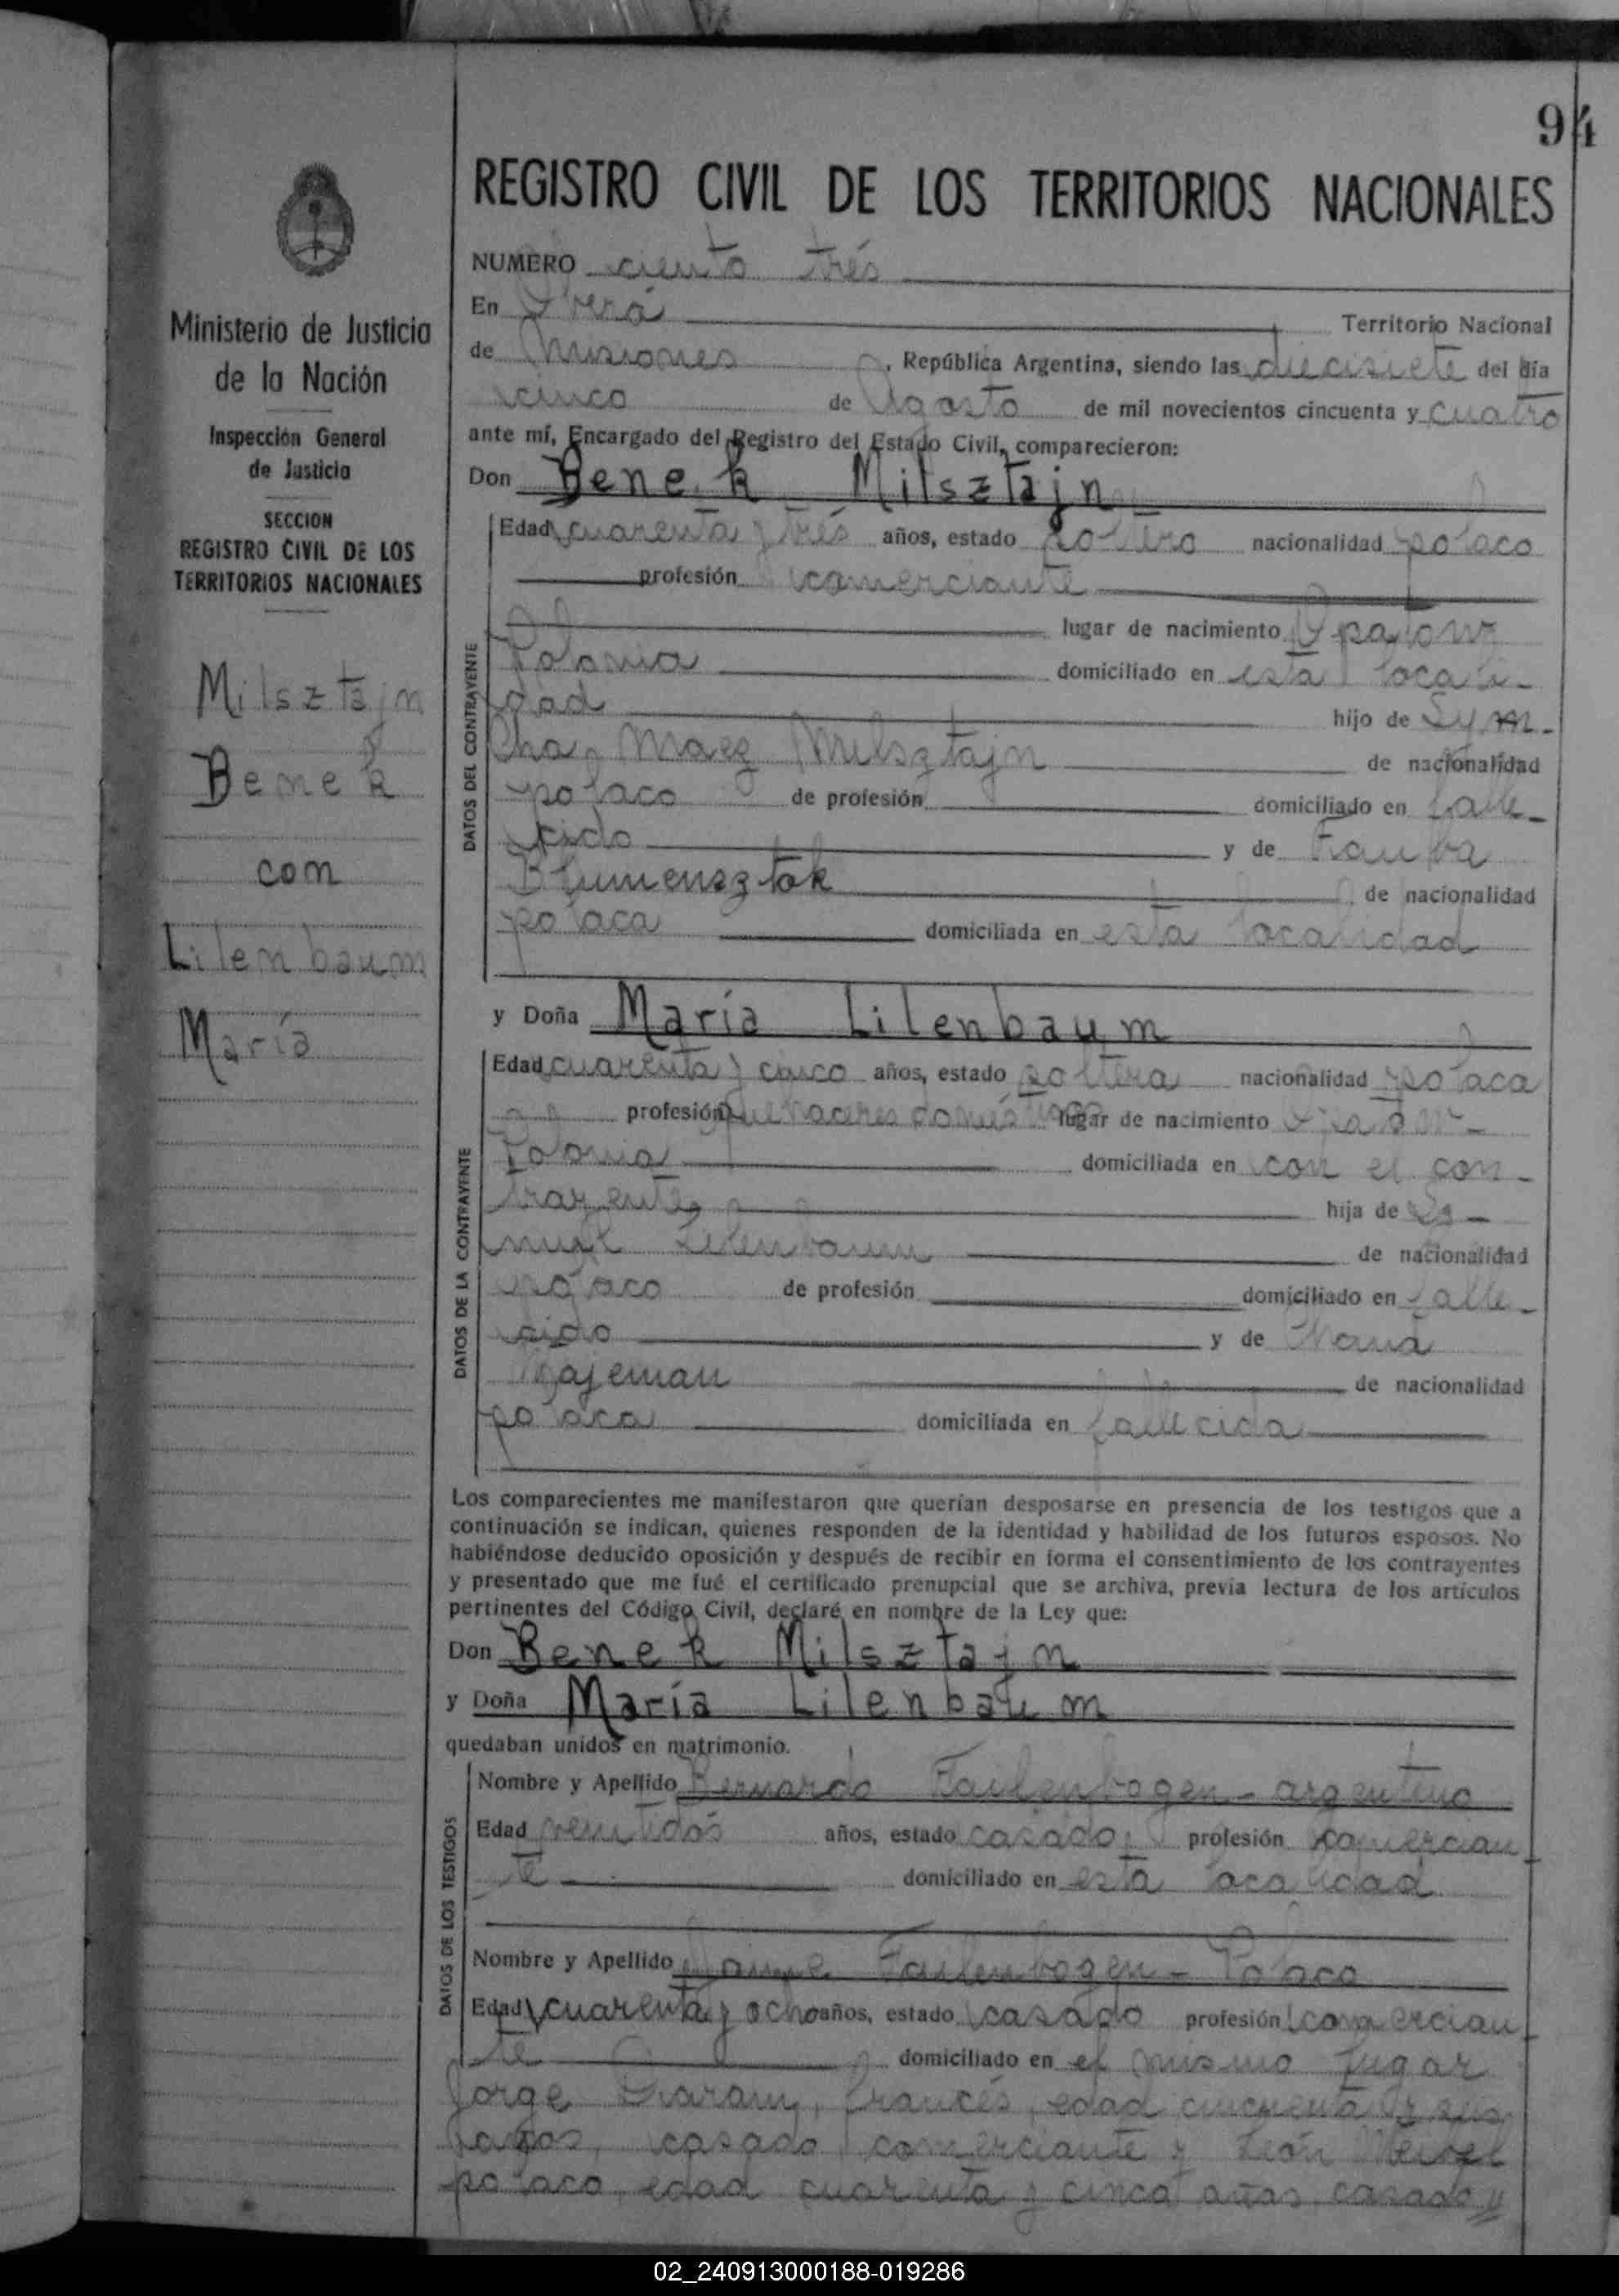 94
REGISTRO CIVIL DE LOS TERRITORIOS NACIONALES
Ministerio de Justicia
de la Nación
Inspección General
de Justicia
SECCION
REGISTRO CIVIL DE LOS
TERRITORIOS NACIONALES
Milsztajn
Benek
con
Lilenbaum
María
NUMERO ciento trés
En Oberá Territorio Nacional
de Misiones, República Argentina, siendo las diecisiete del día
cinco de Agosto de mil novecientos cincuenta y cuatro
ante mí, Encargado del Registro del Estado Civil, comparecieron:
Don Benek Milsztajn
DATOS DEL CONTRAYENTE
Edad cuarenta y trés años, estado soltero nacionalidad polaco
profesión comerciante
lugar de nacimiento
Polonia domiciliado en esta locali-
dad hijo de Sym-
cha Milsztajn de nacionalidad
polaco de profesión domiciliado en falle-
cido y de
Blumensztok de nacionalidad
polaca domiciliada en esta localidad
y Doña María Lilenbaum
DATOS DE LA CONTRAYENTE
Edad cuarenta y cinco años, estado soltera nacionalidad polaca
profesión quehaceres domésticos lugar de nacimiento
Polonia domiciliada en con el con-
trayente hija de
Lilenbaum de nacionalidad
polaco de profesión domiciliado en falle-
cido y de
de nacionalidad
polaca domiciliada en fallecida
Los comparecientes me manifestaron que querían desposarse en presencia de los testigos que a
continuación se indican, quienes responden de la identidad y habilidad de los futuros esposos. No
habiéndose deducido oposición y después de recibir en forma el consentimiento de los contrayentes
y presentado que me fué el certificado prenupcial que se archiva, previa lectura de los artículos
pertinentes del Código Civil, declaré en nombre de la Ley que:
Don Benek Milsztajn
y Doña María Lilenbaum
quedaban unidos en matrimonio.
DATOS DE LOS TESTIGOS
Nombre y Apellido Bernardo Failenbogen - argentino
Edad veintidós años, estado casado, profesión comercian-
te domiciliado en esta localidad
Nombre y Apellido Jaime Failenbogen - Polaco
Edad cuarenta y ocho años, estado casado profesión comercian-
te domiciliado en el mismo lugar
Jorge francés, edad cincuenta y seis
años, casado comerciante y León
polaco, edad cuarenta y cinco años, casado,
02_240913000188-019286